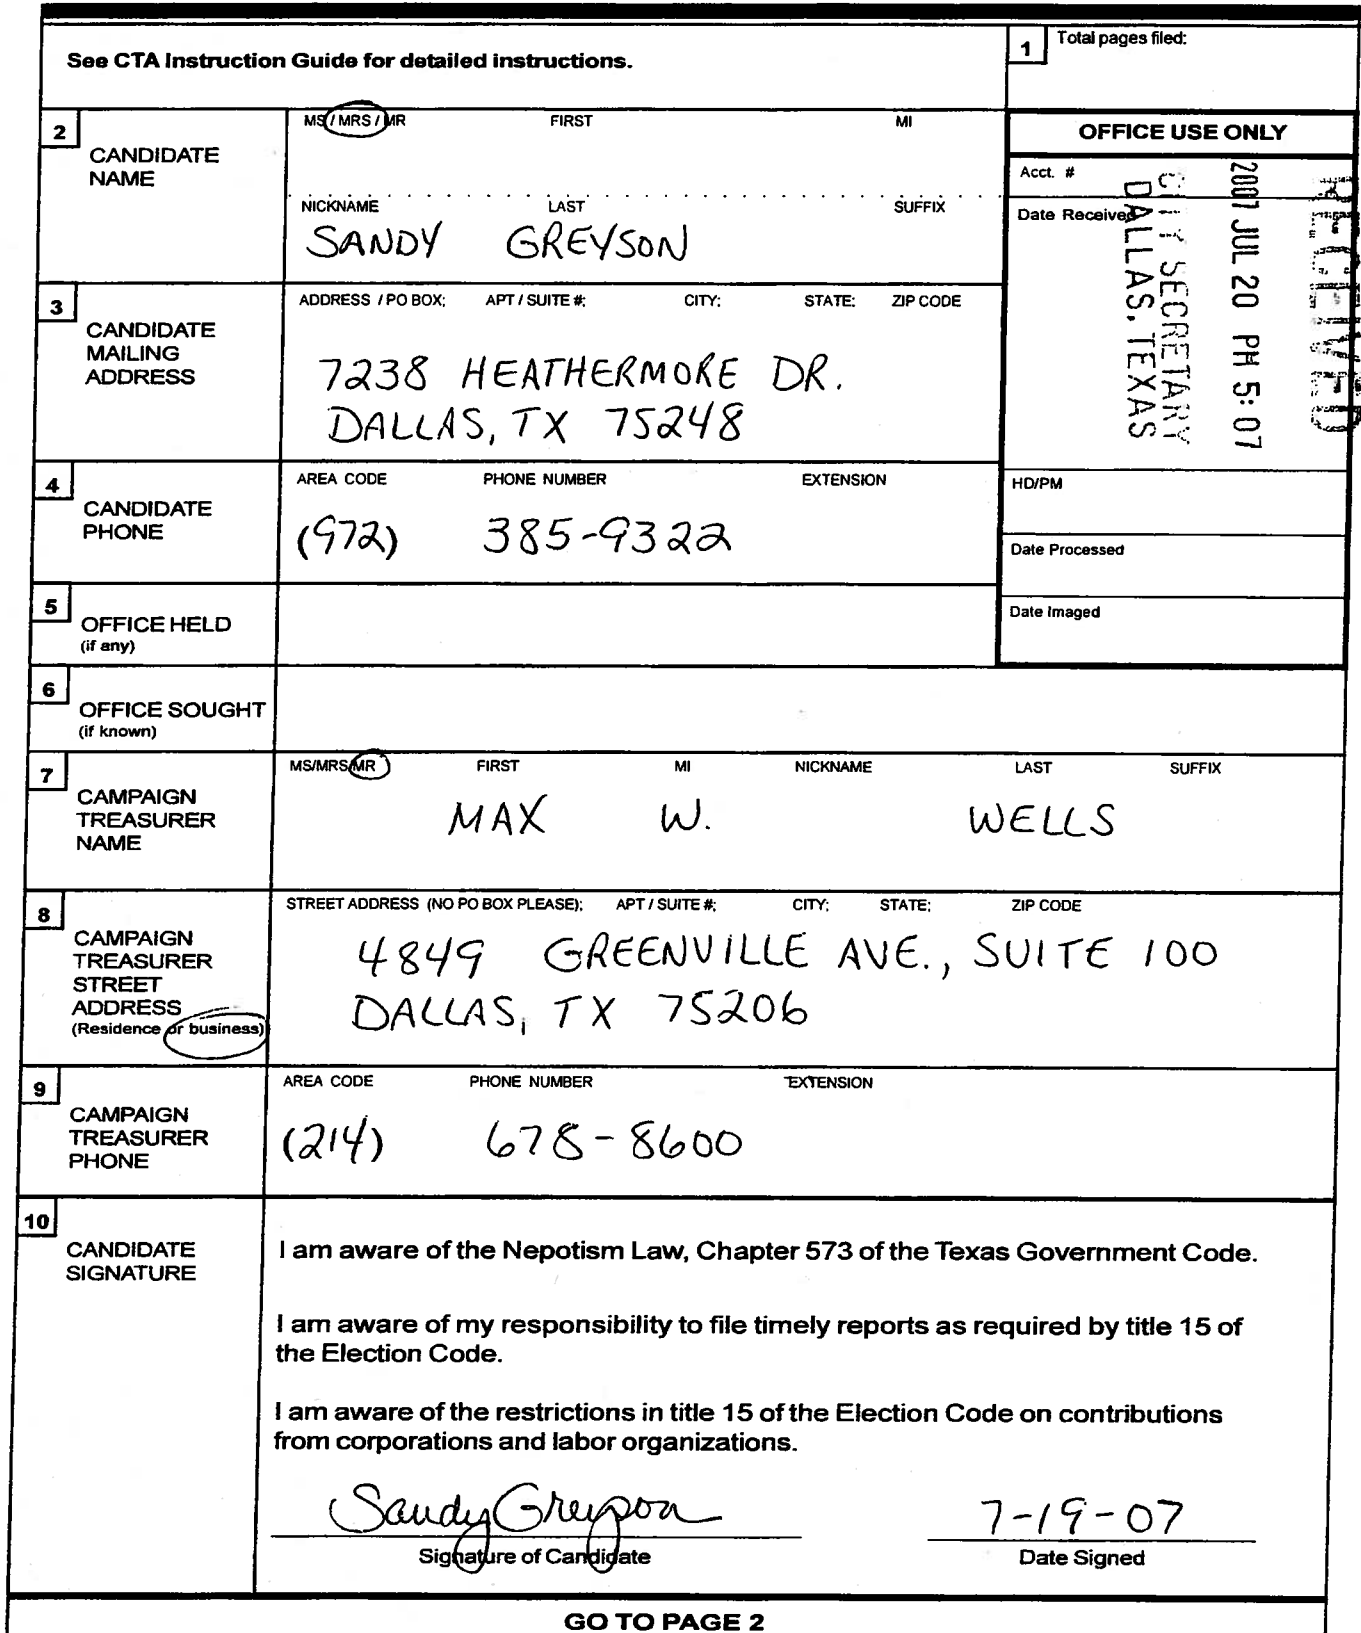 See CTA Instruction Guide for detailed instructions.
1 Total pages filed:
2 CANDIDATE NAME
MS / MRS / MR FIRST MI
NICKNAME LAST SUFFIX
SANDY GREYSON
OFFICE USE ONLY
Acct. #
Date Received
RECEIVED
2007 JUL 20 PM 5:07
CITY SECRETARY
DALLAS, TEXAS
3 CANDIDATE MAILING ADDRESS
ADDRESS / PO BOX; APT / SUITE #; CITY; STATE; ZIP CODE
7238 HEATHERMORE DR.
DALLAS, TX 75248
4 CANDIDATE PHONE
AREA CODE PHONE NUMBER EXTENSION
(972) 385-9322
HD/PM
Date Processed
Date Imaged
5 OFFICE HELD
(if any)
6 OFFICE SOUGHT
(if known)
7 CAMPAIGN TREASURER NAME
MS/MRS/MR FIRST MI NICKNAME LAST SUFFIX
MAX W. WELLS
8 CAMPAIGN TREASURER STREET ADDRESS
(Residence or business)
STREET ADDRESS (NO PO BOX PLEASE); APT / SUITE #; CITY; STATE; ZIP CODE
4849 GREENVILLE AVE., SUITE 100
DALLAS, TX 75206
9 CAMPAIGN TREASURER PHONE
AREA CODE PHONE NUMBER EXTENSION
(214) 678-8600
10 CANDIDATE SIGNATURE
I am aware of the Nepotism Law, Chapter 573 of the Texas Government Code.
I am aware of my responsibility to file timely reports as required by title 15 of
the Election Code.
I am aware of the restrictions in title 15 of the Election Code on contributions
from corporations and labor organizations.
Sandy Greyson 7-19-07
Signature of Candidate Date Signed
GO TO PAGE 2